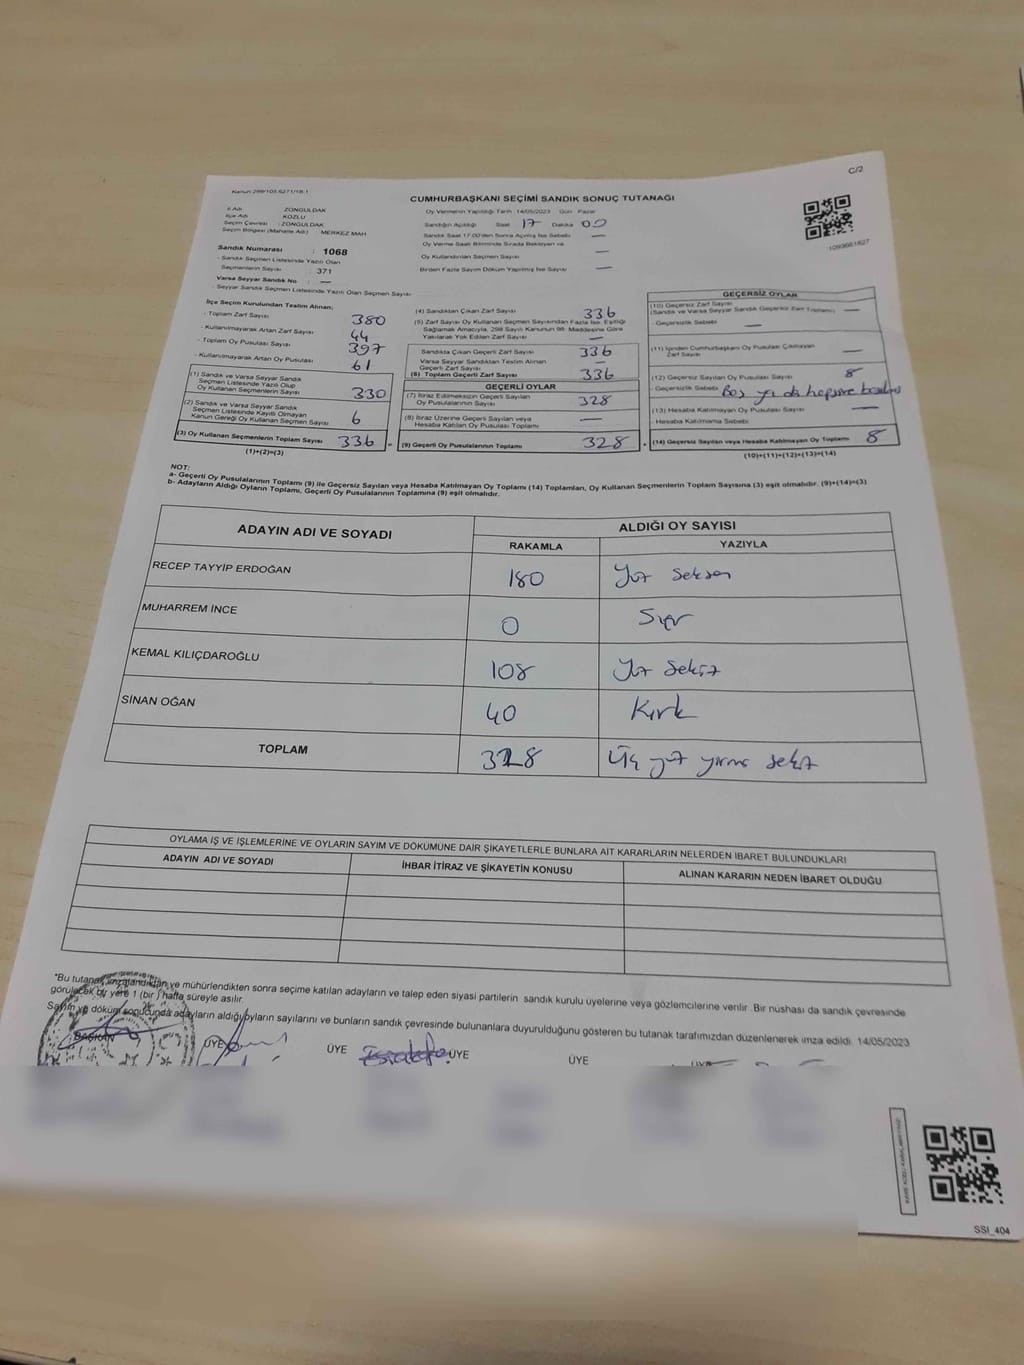 C/2
Kanun 298/105,6271/18-1
CUMHURBAŞKANI SEÇİMİ SANDIK SONUÇ TUTANAĞI
İl Adı : ZONGULDAK
İlçe Adı : KOZLU
Seçim Çevresi : ZONGULDAK
Seçim Bölgesi (Mahalle Adı) : MERKEZ MAH.
Sandık Numarası : 1068
- Sandık Seçmen Listesinde Yazılı Olan
Seçmenlerin Sayısı : 371
Varsa Seyyar Sandık No : —
- Seyyar Sandık Seçmen Listesinde Yazılı Olan Seçmen Sayısı
Oy Vermenin Yapıldığı Tarih : 14/05/2023 Gün : Pazar
Sandığın Açıldığı Saat 17 Dakika 00
Sandık Saat 17:00'den Sonra Açılmış İse Sebebi —
Oy Verme Saati Bitiminde Sırada Bekleyen ve
Oy Kullandırılan Seçmen Sayısı —
Birden Fazla Sayım Döküm Yapılmış İse Sayısı —
1093661827
İlçe Seçim Kurulundan Teslim Alınan;
- Toplam Zarf Sayısı 380
- Kullanılmayarak Artan Zarf Sayısı 44
- Toplam Oy Pusulası Sayısı 397
- Kullanılmayarak Artan Oy Pusulası 61
(1) Sandık ve Varsa Seyyar Sandık
Seçmen Listesinde Yazılı Olup
Oy Kullanan Seçmenlerin Sayısı 330
(2) Sandık ve Varsa Seyyar Sandık
Seçmen Listesinde Kayıtlı Olmayan
Kanun Gereği Oy Kullanan Seçmen Sayısı 6
(3) Oy Kullanan Seçmenlerin Toplam Sayısı 336
(1)+(2)=(3)
(4) Sandıktan Çıkan Zarf Sayısı 336
(5) Zarf Sayısı Oy Kullanan Seçmen Sayısından Fazla İse, Eşitliği
Sağlamak Amacıyla, 298 Sayılı Kanunun 98. Maddesine Göre
Yakılarak Yok Edilen Zarf Sayısı —
Sandıkta Çıkan Geçerli Zarf Sayısı 336
Varsa Seyyar Sandıktan Teslim Alınan
Geçerli Zarf Sayısı —
(6) Toplam Geçerli Zarf Sayısı 336
GEÇERLİ OYLAR
(7) İtiraz Edilmeksizin Geçerli Sayılan
Oy Pusulalarının Sayısı 328
(8) İtiraz Üzerine Geçerli Sayılan veya
Hesaba Katılan Oy Pusulası Toplamı —
= (9) Geçerli Oy Pusulalarının Toplamı 328 +
GEÇERSİZ OYLAR
(10) Geçersiz Zarf Sayısı
(Sandık ve Varsa Seyyar Sandık Geçersiz Zarf Toplamı) —
- Geçersizlik Sebebi —
(11) İçinden Cumhurbaşkanı Oy Pusulası Çıkmayan
Zarf Sayısı —
(12) Geçersiz Sayılan Oy Pusulası Sayısı 8
- Geçersizlik Sebebi Boş ya da hepsine
(13) Hesaba Katılmayan Oy Pusulası Sayısı —
- Hesaba Katılmama Sebebi
(14) Geçersiz Sayılan veya Hesaba Katılmayan Oy Toplamı 8
(10)+(11)+(12)+(13)=(14)
NOT:
a- Geçerli Oy Pusulalarının Toplamı (9) ile Geçersiz Sayılan veya Hesaba Katılmayan Oy Toplamı (14) Toplamları, Oy Kullanan Seçmenlerin Toplam Sayısına (3) eşit olmalıdır. (9)+(14)=(3)
b- Adayların Aldığı Oyların Toplamı, Geçerli Oy Pusulalarının Toplamına (9) eşit olmalıdır.
ADAYIN ADI VE SOYADI
ALDIĞI OY SAYISI
RAKAMLA YAZIYLA
RECEP TAYYİP ERDOĞAN 180 Yüz Seksen
MUHARREM İNCE 0 Sıfır
KEMAL KILIÇDAROĞLU 108 Yüz Sekiz
SİNAN OĞAN 40 Kırk
TOPLAM 328 Üç yüz yirmi sekiz
OYLAMA İŞ VE İŞLEMLERİNE VE OYLARIN SAYIM VE DÖKÜMÜNE DAİR ŞİKAYETLERLE BUNLARA AİT KARARLARIN NELERDEN İBARET BULUNDUKLARI
ADAYIN ADI VE SOYADI İHBAR İTİRAZ VE ŞİKAYETİN KONUSU ALINAN KARARIN NEDEN İBARET OLDUĞU
*Bu tutanak imzalandıktan ve mühürlendikten sonra seçime katılan adayların ve talep eden siyasi partilerin sandık kurulu üyelerine veya gözlemcilerine verilir. Bir nüshası da sandık çevresinde
görülecek bir yere 1 (bir) hafta süreyle asılır.
Sayım ve döküm sonucunda adayların aldığı oyların sayılarını ve bunların sandık çevresinde bulunanlara duyurulduğunu gösteren bu tutanak tarafımızdan düzenlenerek imza edildi. 14/05/2023
BAŞKAN ÜYE ÜYE ÜYE ÜYE ÜYE
SSI_404